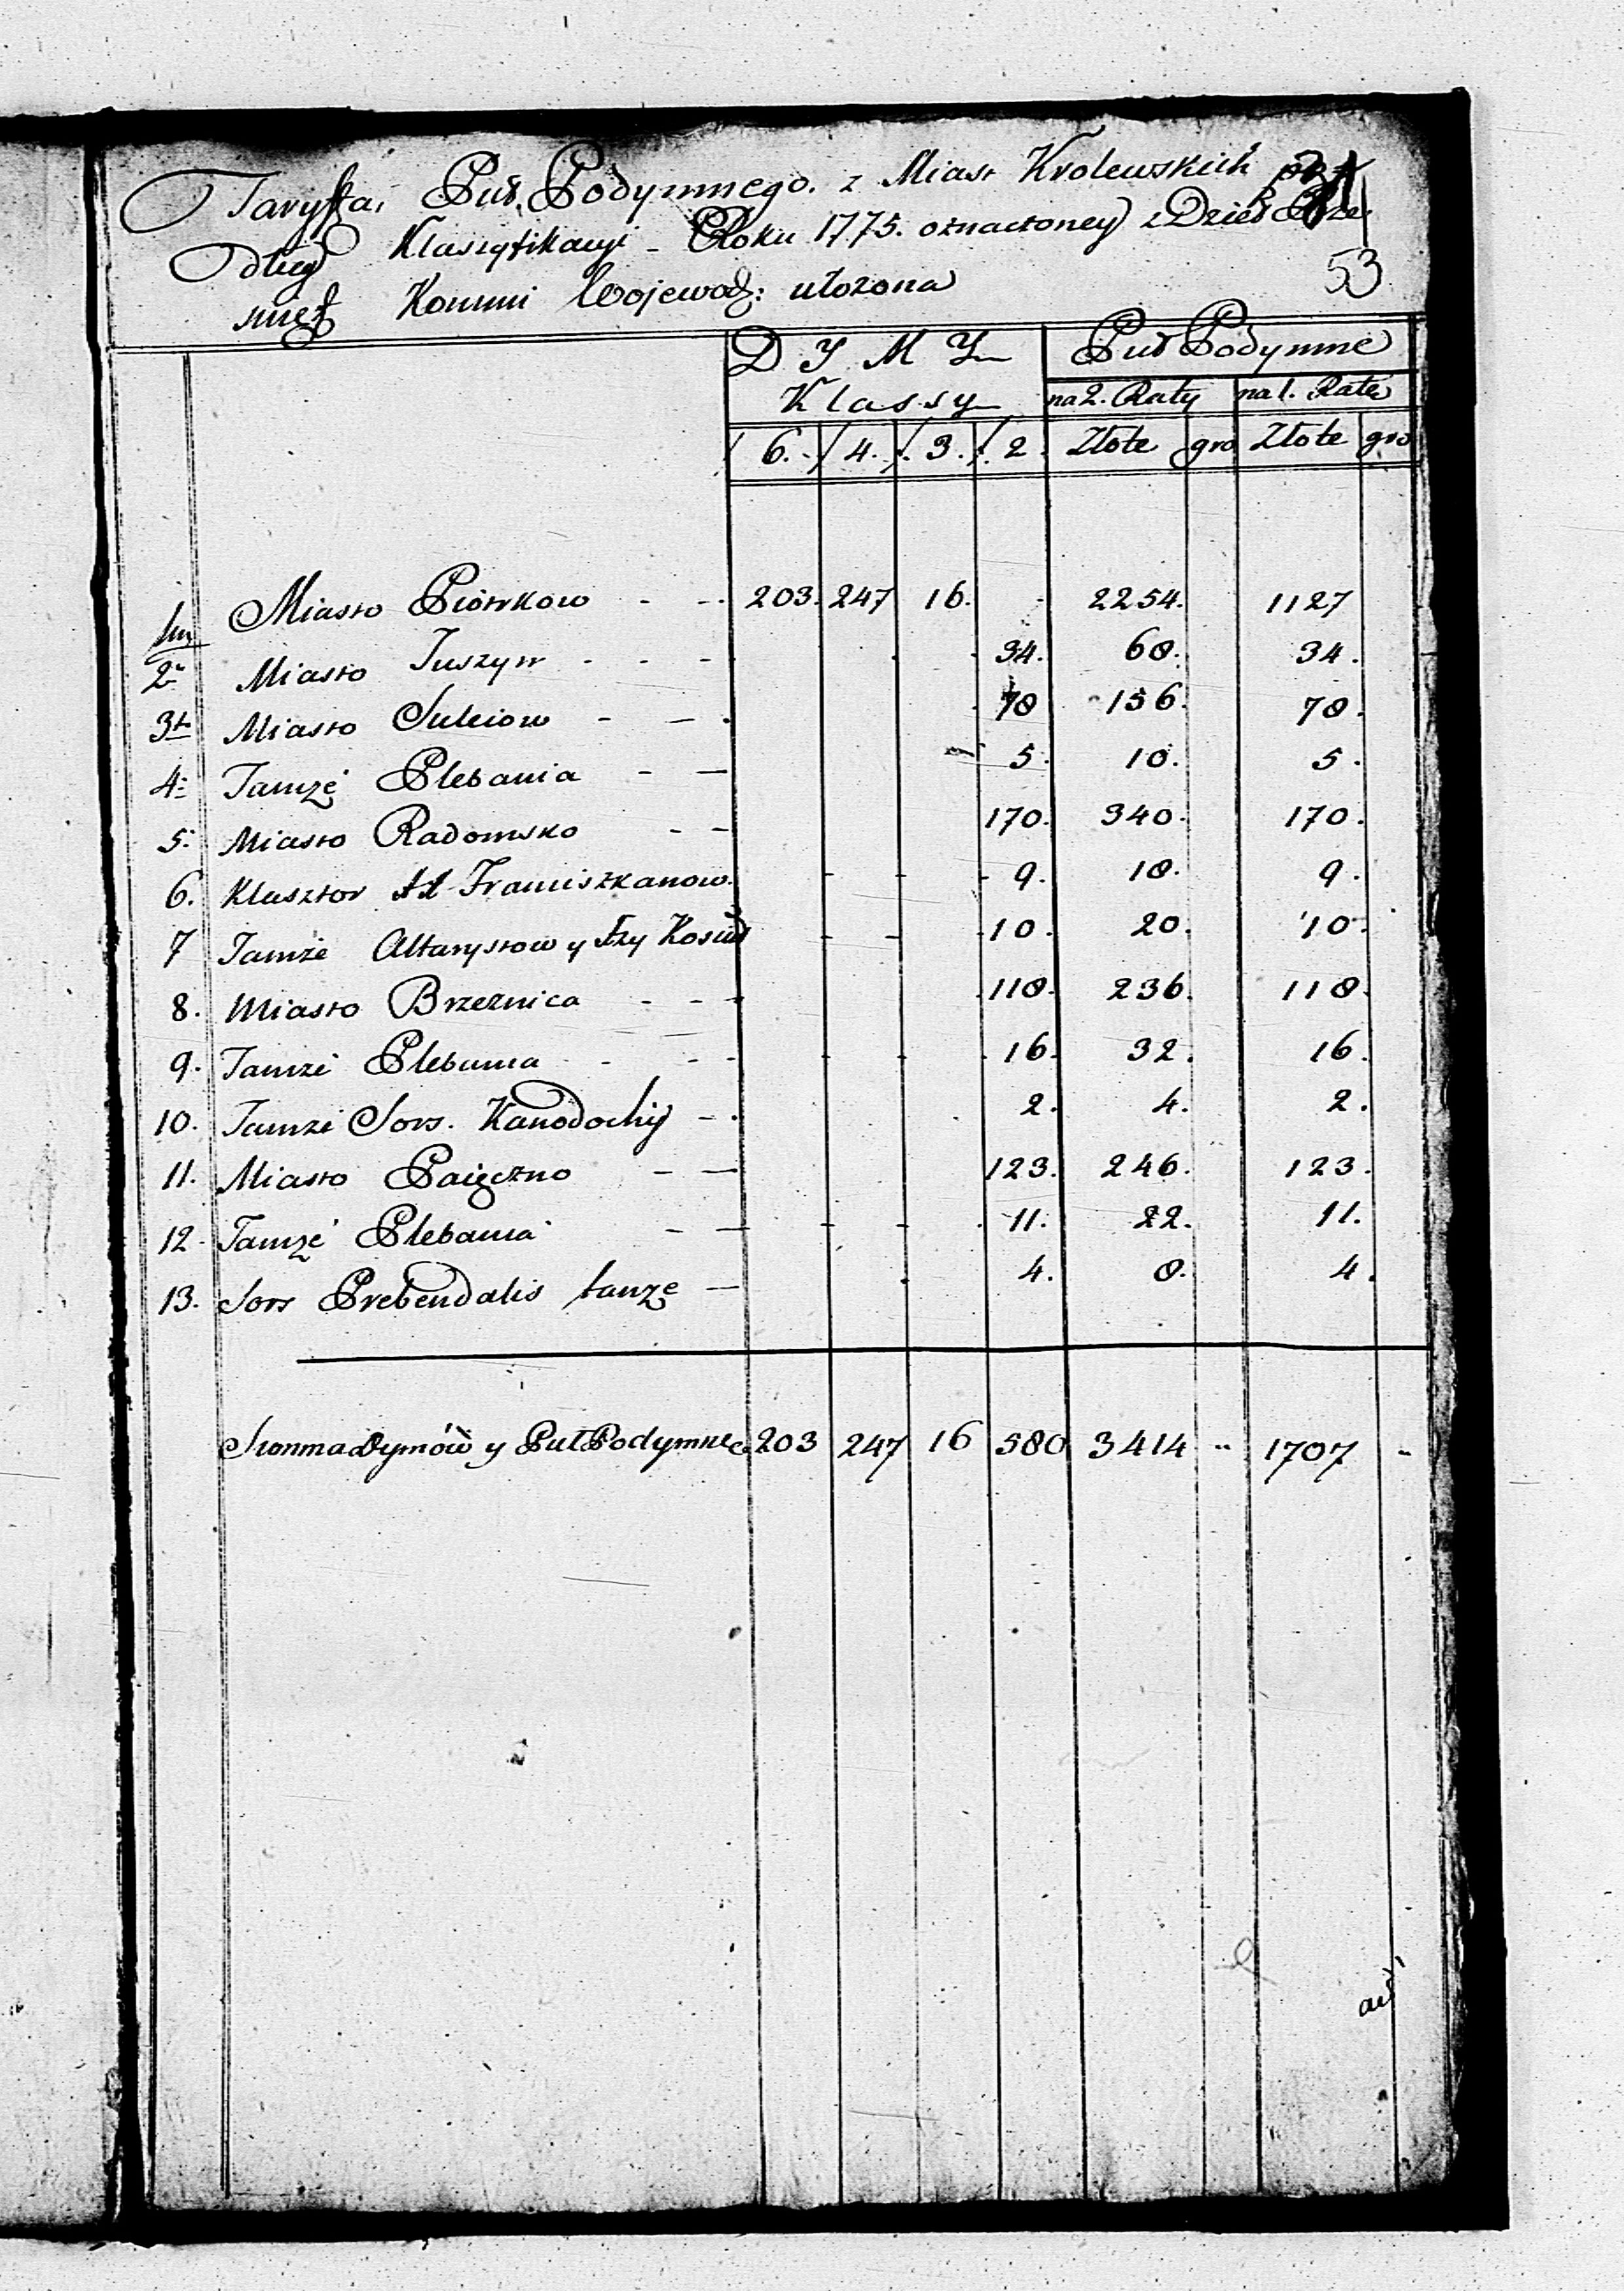 Taryffa, Puł Podymnego. z Miast Krolewskich
dług Klaszyfikacyi - Roku 1775. oznaczoney z Dzieł Prze
Kommi Wojewodz: ułozona 53
D Y M Y Puł Podymne
Klassy na 2. Raty na 1. Ratę
6. 4. 3. 2. Złote gro Złote gro
1m Miasto Piotrkow - - 203. 247 16. 2254. 1127
2. Miasto Tuszyn - - - 34. 68. 34.
3. Miasto Suleiow - - 78 156. 78.
4. Tamze Plebania - - 5. 10. 5.
5. Miasto Radomsko - - 170. 340. 170.
6. Klasztor XX Franciszkanow. 9. 18. 9.
7 Tamże Altarystow y 10. 20. 10.
8. Miasto Brzeznica - - - 118. 236. 118.
9. Tamze Plebania - - - 16. 32. 16.
10. Tamze Sors. Kanodochij - 2. 4. 2.
11. Miasto Paięczno - - 123. 246. 123.
12. Tamze Plebania - - 11. 22. 11.
13. Sors Prebendalis tamze - 4. 8. 4.
Summa Dymów y Puł Podymne 203 247 16 580 3414 " 1707 -